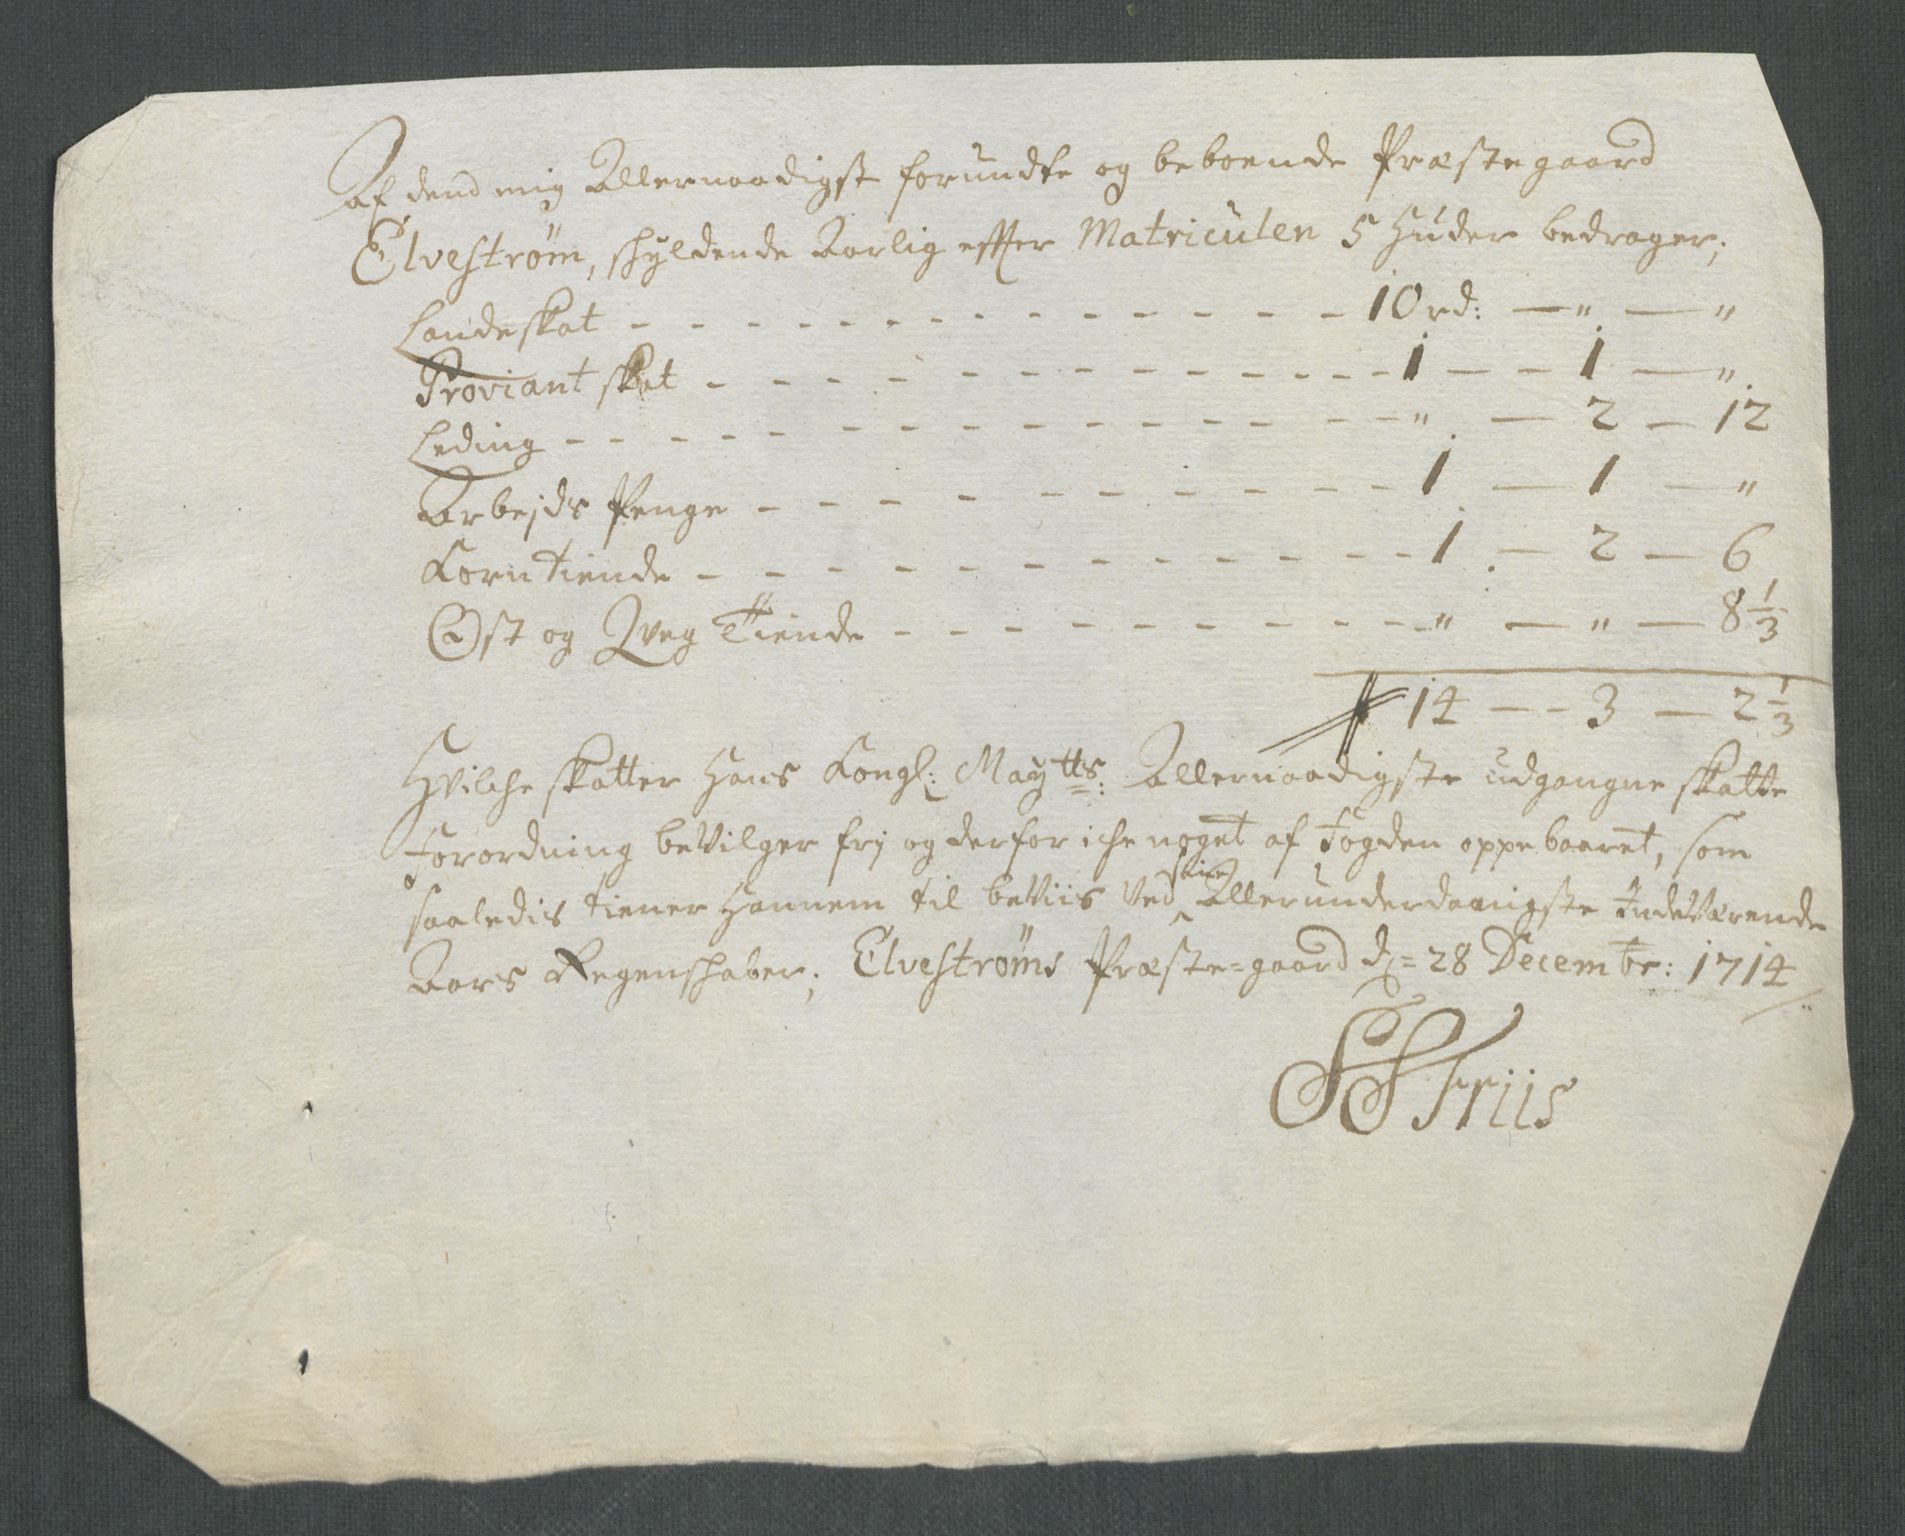 Af dend mig Allernaadigst forundte og beboende Præstegaard
Elvestrøm, skyldende Aarlig effter Matriculen 5 Huder bedrager;
Landeskat - - - - - - - - - - - - 10 rd: — " — "
Proviant skat - - - - - - - - - - - 1 — — 1 — "
Leding - - - - - - - - - - - - " — 2 — 12
Arbejds Penge - - - - - - - - - - 1 — 1 — "
Korn tiende - - - - - - - - - - - 1 — 2 — 6
Ost og Qveg Tiende - - - - - - - - - " — " — 8 1/3
14 — — 3 — 2 1/3
Hvilche skatter Hans Kongl: Maytts: Allernaadigste udgangne skatte
Forordning beVilger frj og derfor iche noget af Fogden oppebaaret, som
saaledis tiener Hannem til beViis Ved sine Allerunderdaanigste IndeVærende
Aars Regenschaber; Elvestrøms Præste=gaard d= 28 Decembr: 1714
SS Friis